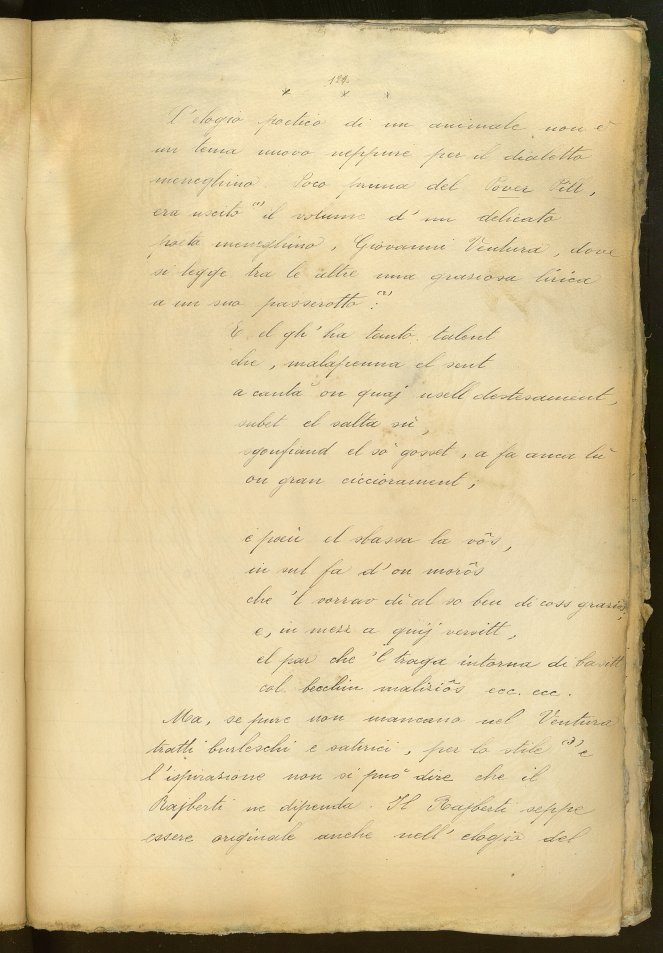 184.
× × ×
L'elogio poetico di un animale non è
un tema nuovo neppure per il dialetto
meneghino Poco prima del Pover Pill,
era uscito (1) il volume d'un delicato
poeta meneghino, Giovanni Ventura, dove
si legge tra le altre una graziosa lirica
a un suo passerotto (2):
E el gh'ha tanto talent
che, malapenna el sent
a cantà on quaj usell destesament,
subet el salta sù,
sgonfiand el sò gosset, a fa anca lù
on gran cicciorament;
e poeù el sbassa la vôs,
in sul fa d'on morôs
che 'l vorrav dì al so ben di coss grazios,
e, in mezz a quij versitt,
el par che 'l traga intorna di basitt
col becchin maliziôs ecc. ecc.
Ma, se pure non mancano nel Ventura
tratti burleschi e satirici, per lo stile (3) e
l'ispirazione non si può dire che il
Rajberti ne dipenda. Il Rajberti seppe
essere originale anche nell'elogio del